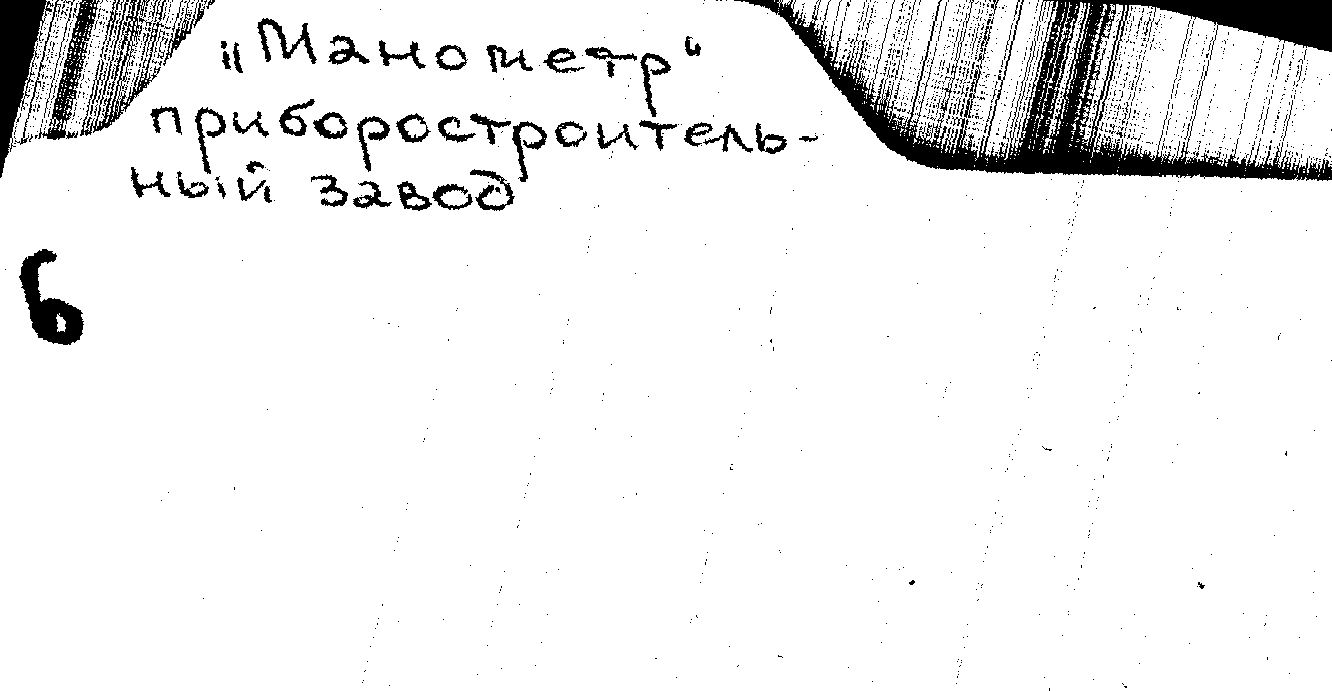 „Манометр“
приборостроитель-
ный завод
6